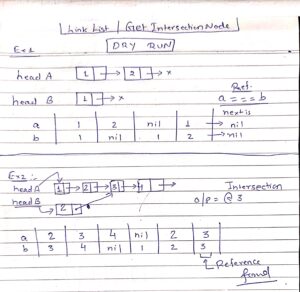 Link List | Get Intersection Node
DRY RUN
Ex 1
head A 1 → 2 → x
head B 1 → x
Ref.
a === b
next is
a | 1 | 2 | nil | 1 → nil
b | 1 | nil | 1 | 2 → nil
Ex 2 :-
head A → 1 → 2 → 3 → 4 →
head B 2
Intersection
o/p = @ 3
a | 2 | 3 | 4 | nil | 2 | 3
b | 3 | 4 | nil | 1 | 2 | 3
Reference
found